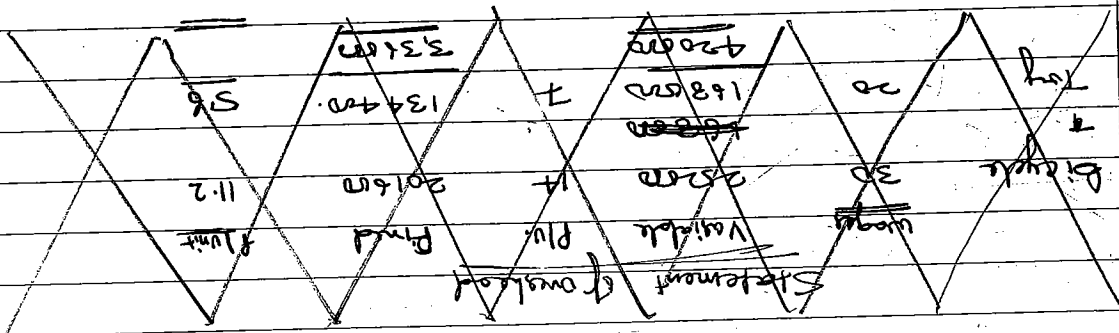 Statement of overhead
wages Variable P/U. Fixed P/unit
Bicycle 30 252000 14 201600 11.2
&
Toy 20 168000 7 134400. 5.6
420000 3,36000